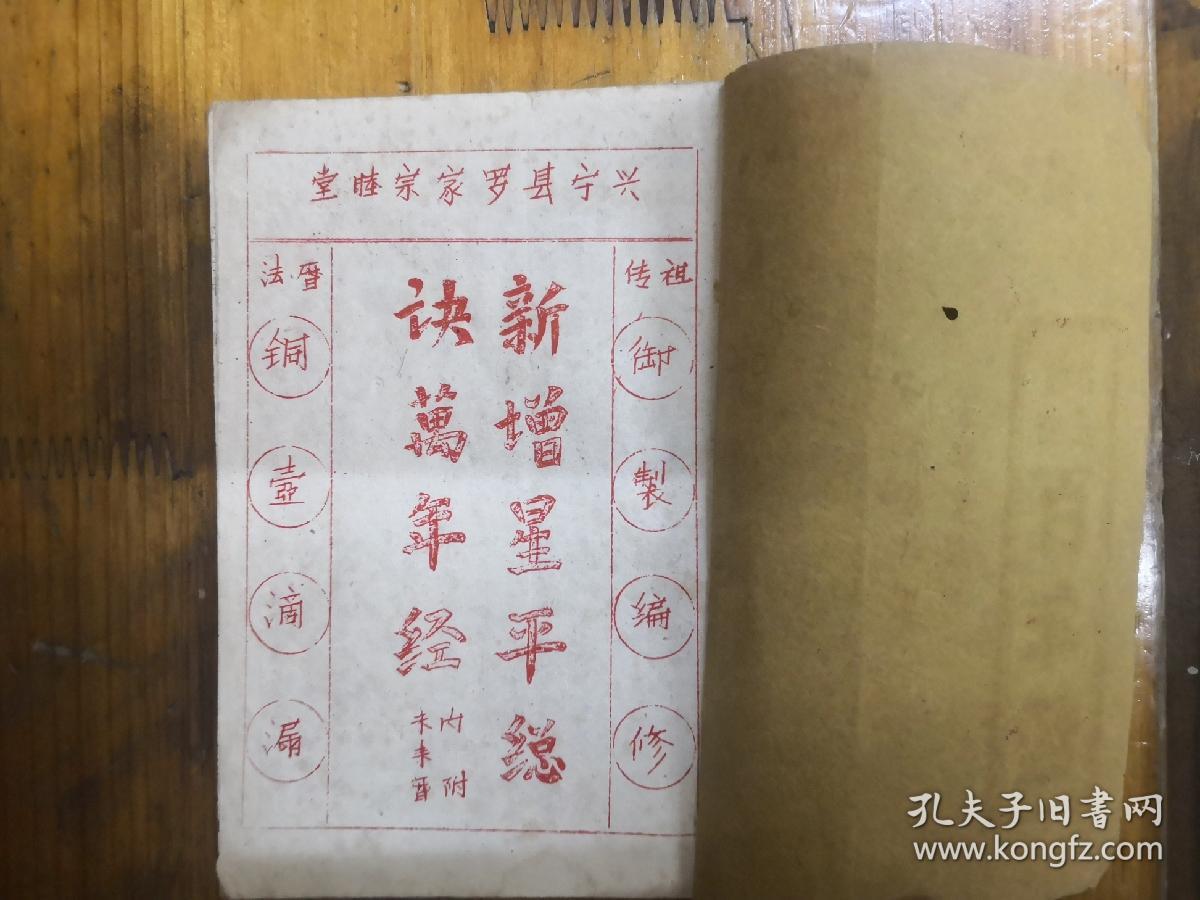 兴宁县罗家宗睦堂
祖传
御製编修
新增星平總
诀萬年经
内附
未来暦
暦法
铜壺滴漏
孔夫子旧书网
www.kongfz.com